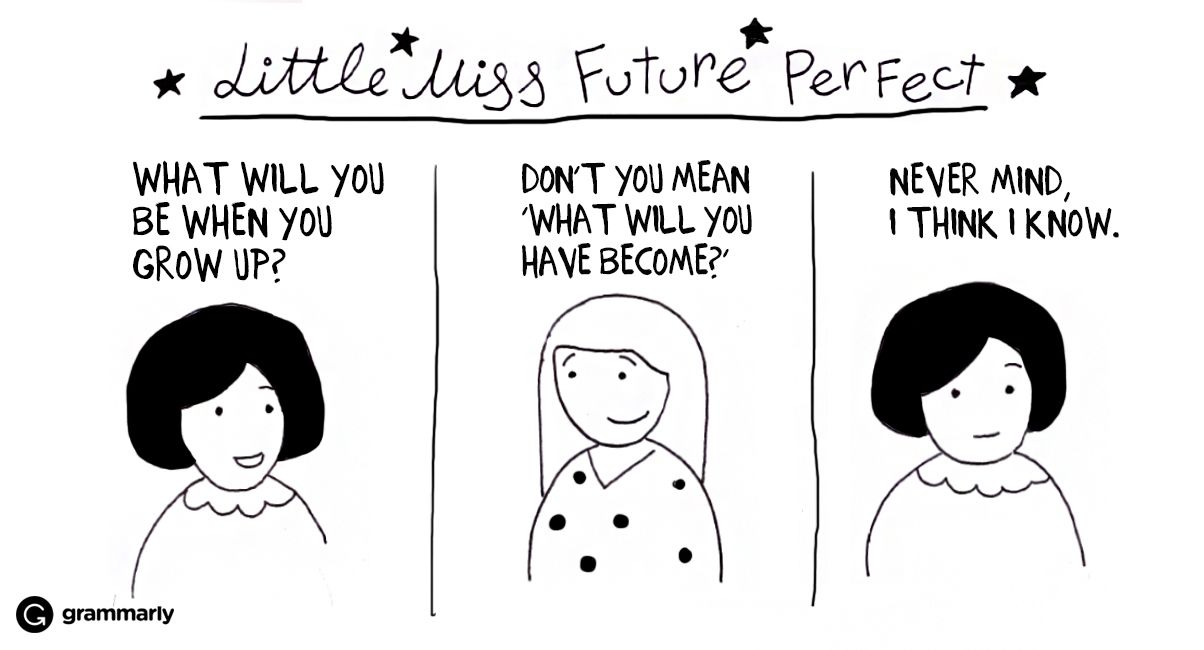 Little Miss Future Perfect
WHAT WILL YOU
BE WHEN YOU
GROW UP?
DON'T YOU MEAN
'WHAT WILL YOU
HAVE BECOME?'
NEVER MIND,
I THINK I KNOW.
grammarly